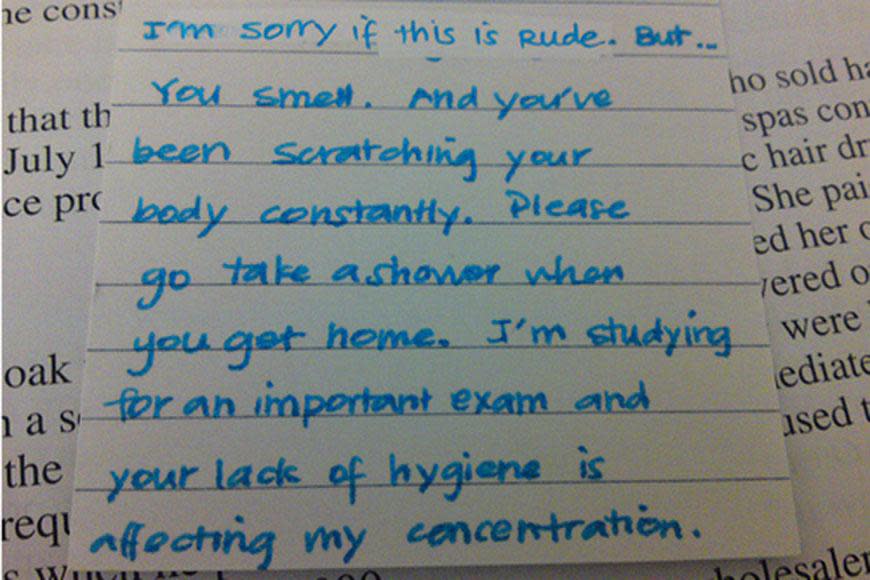 I'm sorry if this is Rude. But...
You smell. And you've
been scratching your
body constantly. Please
go take a shower when
you get home. I'm studying
for an important exam and
your lack of hygiene is
affecting my concentration.
that th
July 1
oak
the
ho sold ha
spas con
c hair dr
She pai
ed her
vered o
were
ediate
used t
holesaler